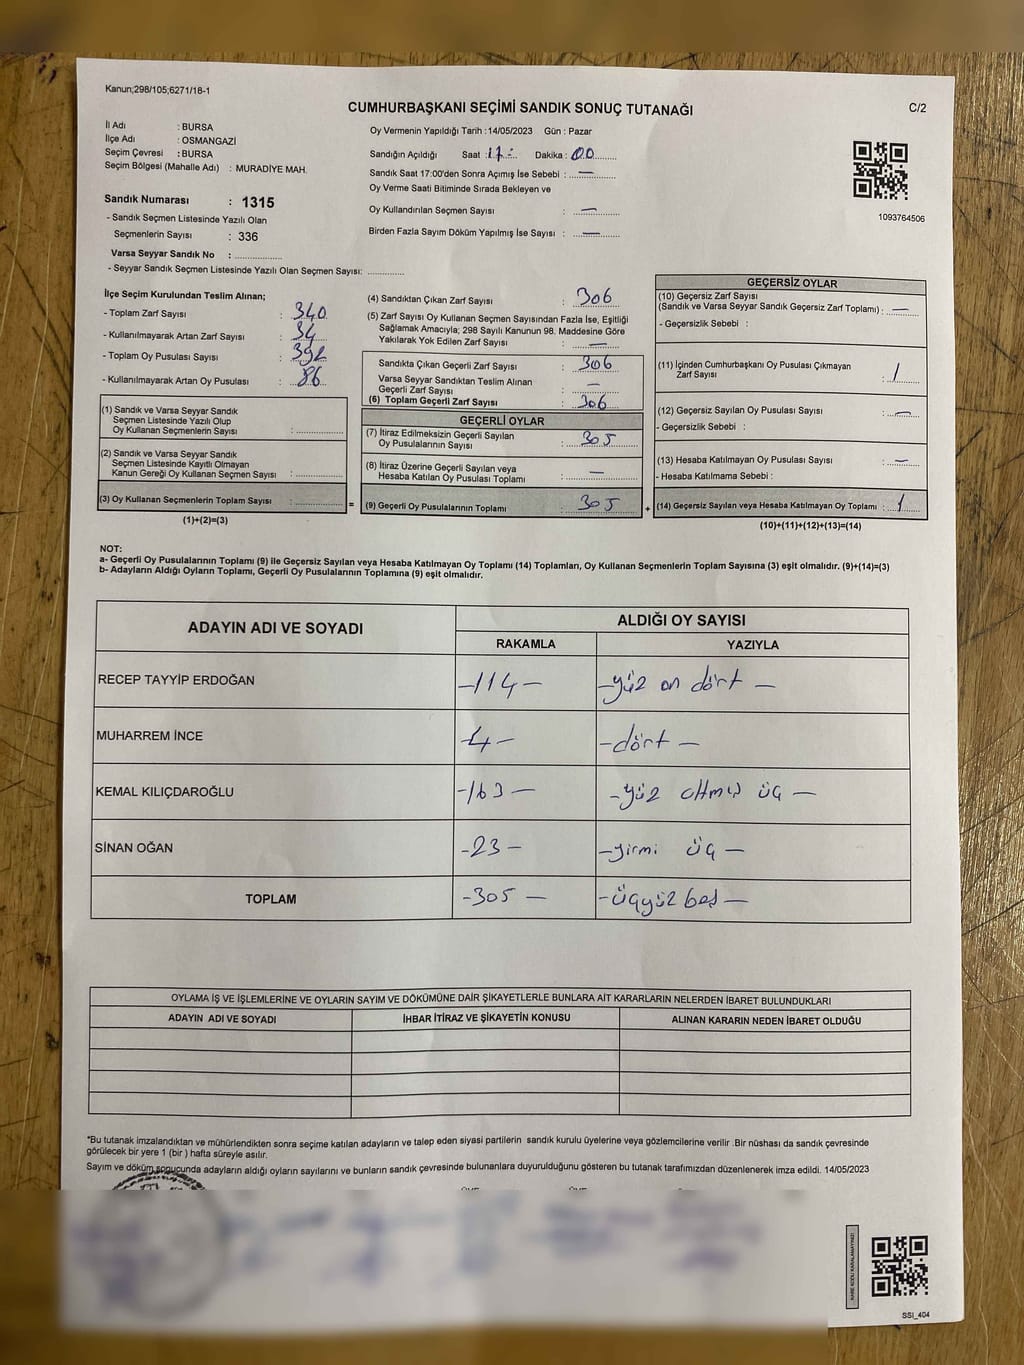 Kanun;298/105;6271/18-1
CUMHURBAŞKANI SEÇİMİ SANDIK SONUÇ TUTANAĞI
C/2
İl Adı : BURSA
İlçe Adı : OSMANGAZİ
Seçim Çevresi : BURSA
Seçim Bölgesi (Mahalle Adı) : MURADİYE MAH.
Sandık Numarası : 1315
- Sandık Seçmen Listesinde Yazılı Olan
Seçmenlerin Sayısı : 336
Varsa Seyyar Sandık No : ...............
- Seyyar Sandık Seçmen Listesinde Yazılı Olan Seçmen Sayısı: ............
Oy Vermenin Yapıldığı Tarih : 14/05/2023 Gün : Pazar
Sandığın Açıldığı Saat : 17 Dakika : 00
Sandık Saat 17:00'den Sonra Açımış İse Sebebi : —
Oy Verme Saati Bitiminde Sırada Bekleyen ve
Oy Kullandırılan Seçmen Sayısı : —
Birden Fazla Sayım Döküm Yapılmış İse Sayısı : —
1093764506
İlçe Seçim Kurulundan Teslim Alınan;
- Toplam Zarf Sayısı : 340
- Kullanılmayarak Artan Zarf Sayısı : 34
- Toplam Oy Pusulası Sayısı : 392
- Kullanılmayarak Artan Oy Pusulası : 86
(1) Sandık ve Varsa Seyyar Sandık
Seçmen Listesinde Yazılı Olup
Oy Kullanan Seçmenlerin Sayısı : ............
(2) Sandık ve Varsa Seyyar Sandık
Seçmen Listesinde Kayıtlı Olmayan
Kanun Gereği Oy Kullanan Seçmen Sayısı : ............
(3) Oy Kullanan Seçmenlerin Toplam Sayısı : ............ =
(1)+(2)=(3)
(4) Sandıktan Çıkan Zarf Sayısı : 306
(5) Zarf Sayısı Oy Kullanan Seçmen Sayısından Fazla İse, Eşitliği
Sağlamak Amacıyla; 298 Sayılı Kanunun 98. Maddesine Göre
Yakılarak Yok Edilen Zarf Sayısı : —
Sandıkta Çıkan Geçerli Zarf Sayısı : 306
Varsa Seyyar Sandıktan Teslim Alınan
Geçerli Zarf Sayısı : —
(6) Toplam Geçerli Zarf Sayısı : 306
GEÇERLİ OYLAR
(7) İtiraz Edilmeksizin Geçerli Sayılan
Oy Pusulalarının Sayısı : 305
(8) İtiraz Üzerine Geçerli Sayılan veya
Hesaba Katılan Oy Pusulası Toplamı : —
(9) Geçerli Oy Pusulalarının Toplamı : 305 +
GEÇERSİZ OYLAR
(10) Geçersiz Zarf Sayısı
(Sandık ve Varsa Seyyar Sandık Geçersiz Zarf Toplamı) : —
- Geçersizlik Sebebi :
(11) İçinden Cumhurbaşkanı Oy Pusulası Çıkmayan
Zarf Sayısı : 1
(12) Geçersiz Sayılan Oy Pusulası Sayısı : —
- Geçersizlik Sebebi :
(13) Hesaba Katılmayan Oy Pusulası Sayısı : —
- Hesaba Katılmama Sebebi :
(14) Geçersiz Sayılan veya Hesaba Katılmayan Oy Toplamı : 1
(10)+(11)+(12)+(13)=(14)
NOT:
a- Geçerli Oy Pusulalarının Toplamı (9) ile Geçersiz Sayılan veya Hesaba Katılmayan Oy Toplamı (14) Toplamları, Oy Kullanan Seçmenlerin Toplam Sayısına (3) eşit olmalıdır. (9)+(14)=(3)
b- Adayların Aldığı Oyların Toplamı, Geçerli Oy Pusulalarının Toplamına (9) eşit olmalıdır.
ADAYIN ADI VE SOYADI ALDIĞI OY SAYISI
RAKAMLA YAZIYLA
RECEP TAYYİP ERDOĞAN -114- -yüz on dört-
MUHARREM İNCE -4- -dört-
KEMAL KILIÇDAROĞLU -163- -yüz altmış üç-
SİNAN OĞAN -23- -yirmi üç-
TOPLAM -305- -üçyüz beş-
OYLAMA İŞ VE İŞLEMLERİNE VE OYLARIN SAYIM VE DÖKÜMÜNE DAİR ŞİKAYETLERLE BUNLARA AİT KARARLARIN NELERDEN İBARET BULUNDUKLARI
ADAYIN ADI VE SOYADI İHBAR İTİRAZ VE ŞİKAYETİN KONUSU ALINAN KARARIN NEDEN İBARET OLDUĞU
*Bu tutanak imzalandıktan ve mühürlendikten sonra seçime katılan adayların ve talep eden siyasi partilerin sandık kurulu üyelerine veya gözlemcilerine verilir .Bir nüshası da sandık çevresinde
görülecek bir yere 1 (bir ) hafta süreyle asılır.
Sayım ve döküm sonucunda adayların aldığı oyların sayılarını ve bunların sandık çevresinde bulunanlara duyurulduğunu gösteren bu tutanak tarafımızdan düzenlenerek imza edildi. 14/05/2023
KARE KODU KARALAMAYINIZ!
SSI_404